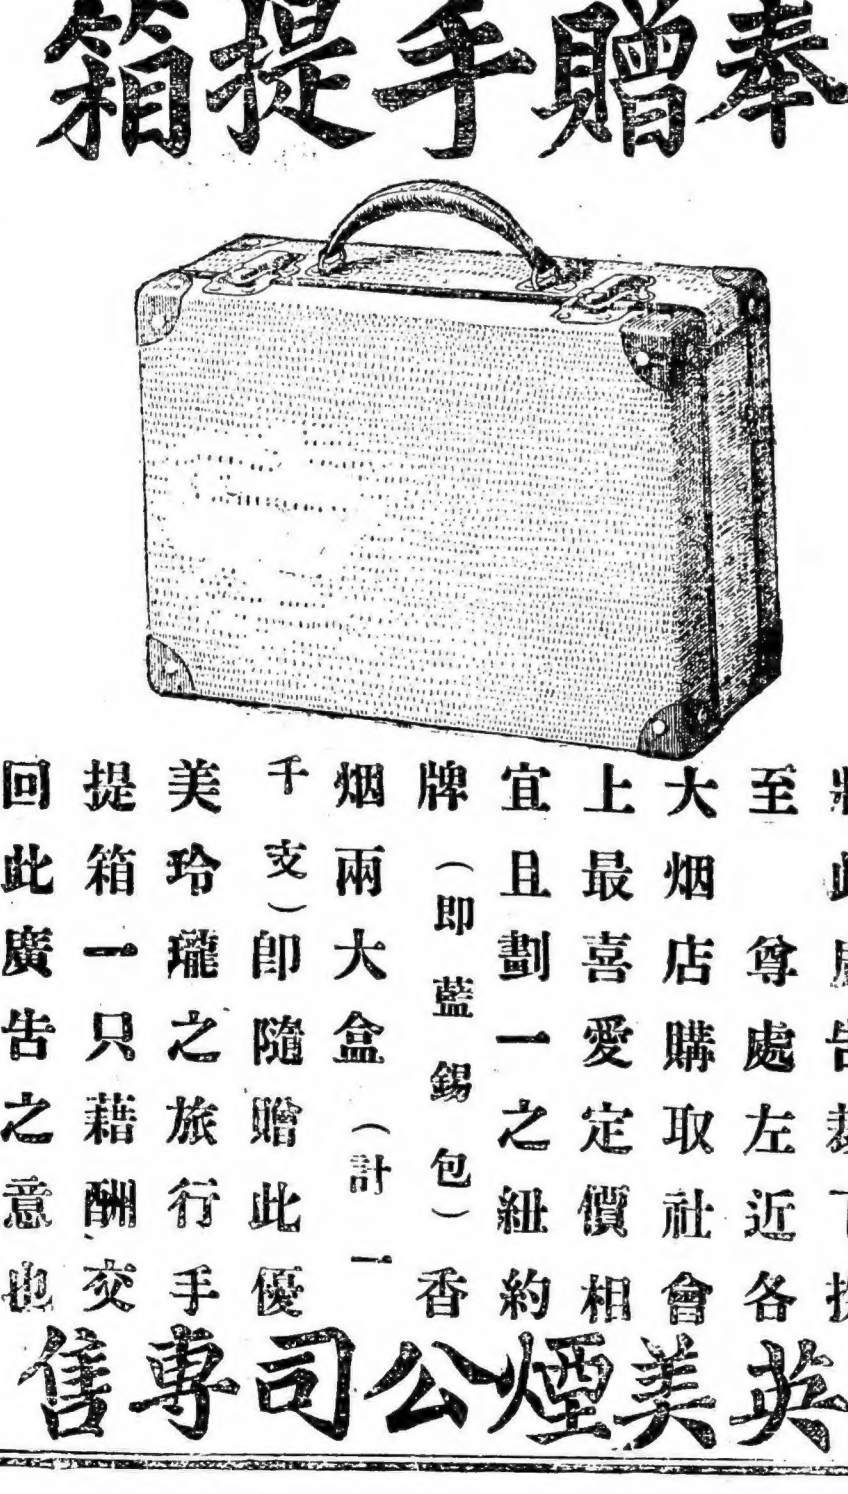 奉贈手提箱
至 尊處左近各
大烟店購取社會
上最喜愛定價相
宜且劃一之紐約
牌（即藍錫包）香
烟兩大盒（計一
千支）卽隨贈此優
美玲瓏之旅行手
提箱一只藉酬交
回此廣告之意也
英美煙公司專售